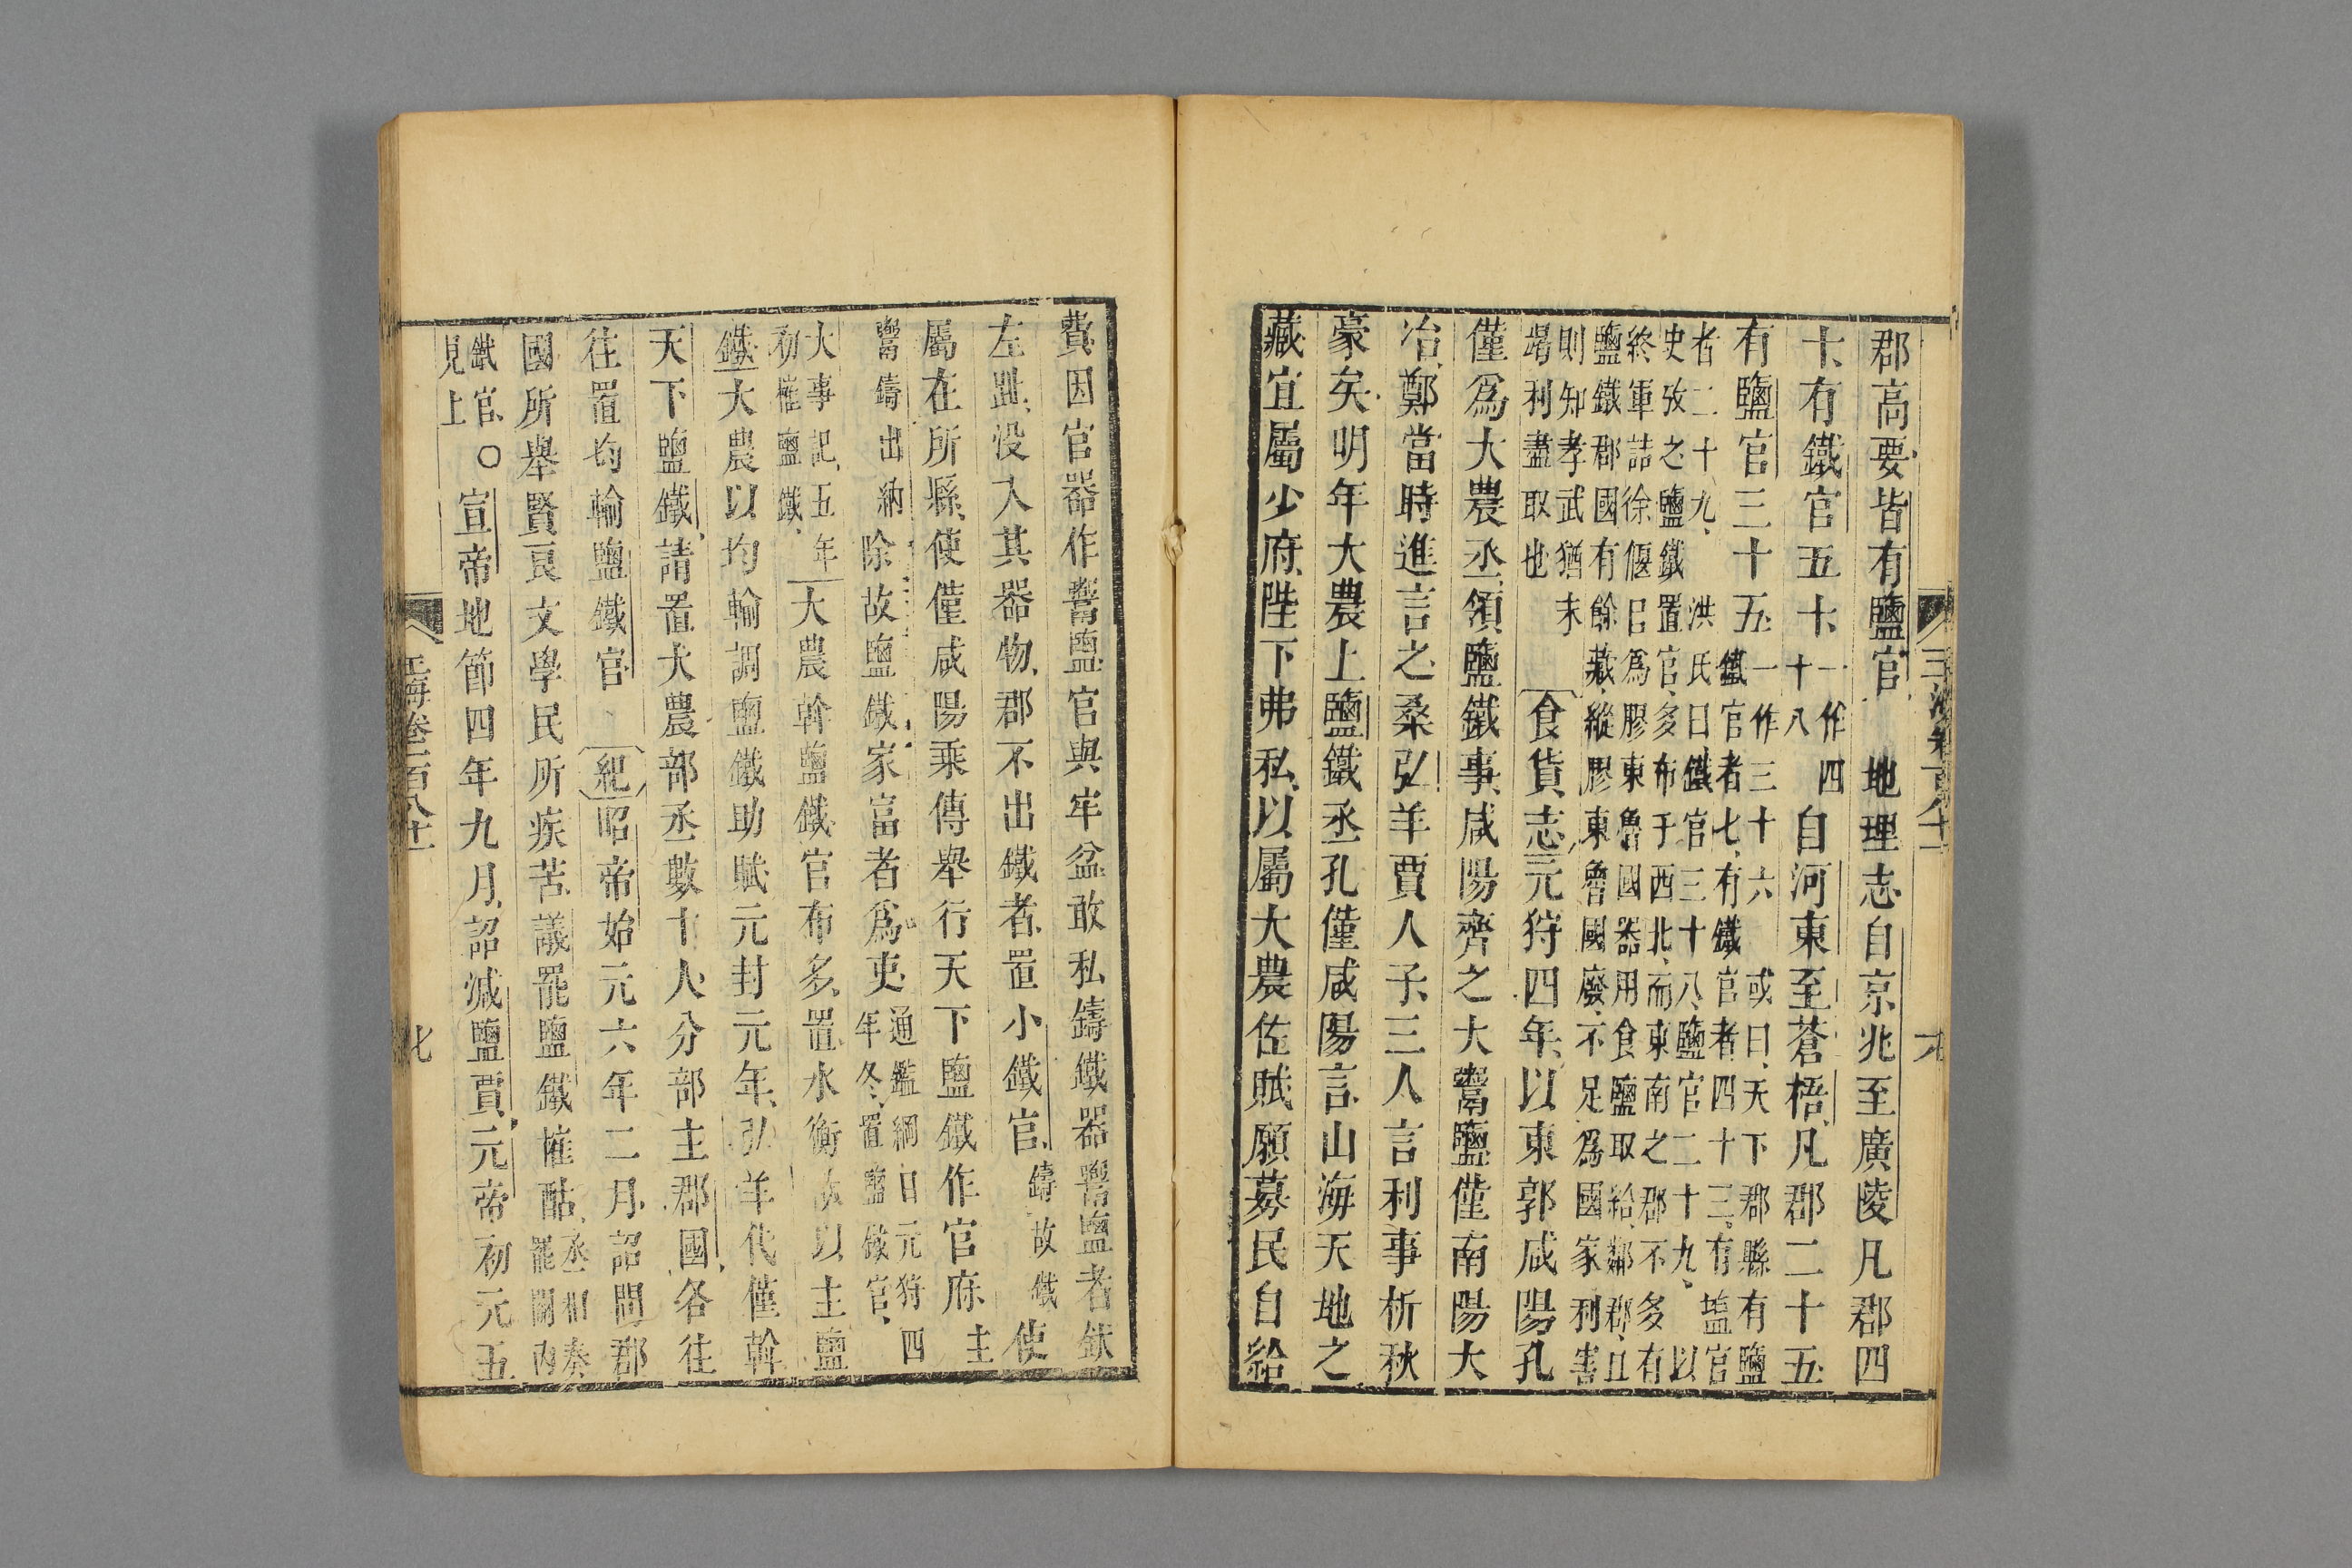 郡高要皆有鹽官地理志自京兆至廣陵凡郡四
十有鐵官五十一作四十八自河東至蒼梧凡郡二十五
有鹽官三十五一作三十六或曰天下郡縣有鹽鐵官者七有鐵官者四十三有塩官
者二十九洪氏曰鐵官三十八鹽官二十九以史攷之鹽鐵置官多布于西北而東南之郡不多有
終軍詰徐偃曰爲膠東魯國器用食鹽取給鄰郡且鹽鐵郡國有餘藏縱膠東魯國廢不足爲國家利害
則知孝武猶未竭利盡取也食貨志元狩四年以東郭咸陽孔
僅爲大農丞領鹽鐵事咸陽齊之大鬻鹽僅南陽大
冶鄭當時進言之桑弘羊賈人子三人言利事析秋
豪矣明年大農上鹽鐵丞孔僅咸陽言山海天地之
藏宜屬少府陛下弗私以屬大農佐賦願募民自給
費因官器作鬻鹽官與牢盆敢私鑄鐵器鬻鹽者釱
左趾沒入其器物郡不出鐵者置小鐵官鑄故鐵使
屬在所縣使僅咸陽乘傳舉行天下鹽鐵作官府主
鬻鑄出納除故鹽鐵家富者爲吏通鑑綱目元狩四年冬置鹽鐵官
大事記五年初榷鹽鐵大農幹鹽鐵官布多置水衡故以主鹽
鐵大農以均輸調鹽鐵助賦元封元年弘羊代僅幹
天下鹽鐵請置大農部丞數十人分部主郡國各往
往置均輸鹽鐵官紀昭帝始元六年二月詔問郡
國所舉賢良文學民所疾苦議罷鹽鐵榷酤丞相奏罷關內
鐵官見上○宣帝地節四年九月詔減鹽賈元帝初元五
玉海卷一百八十一